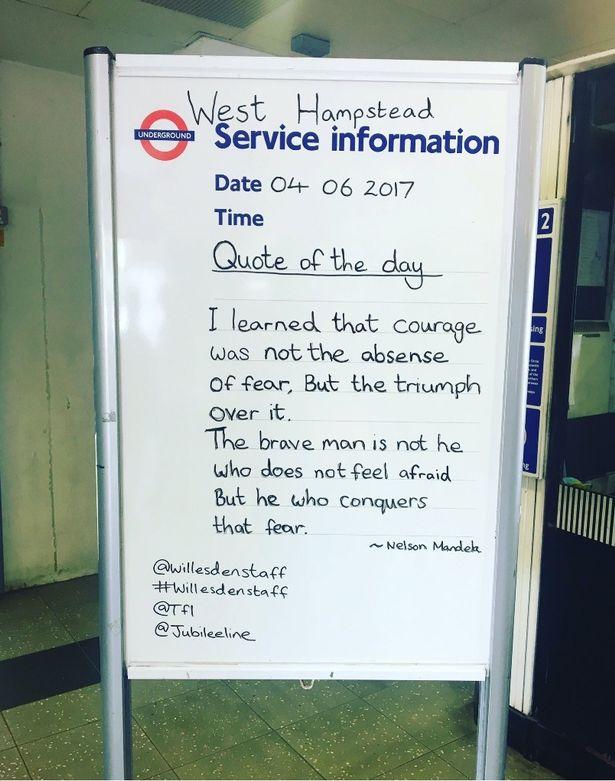 West Hampstead
UNDERGROUND
Service information
Date 04 06 2017
Time
Quote of the day
I learned that courage
was not the absense
of fear, But the triumph
over it.
The brave man is not he
who does not feel afraid
But he who conquers
that fear.
~ Nelson Mandela
@willesdenstaff
#Willesdenstaff
@Tfl
@Jubileeline
2